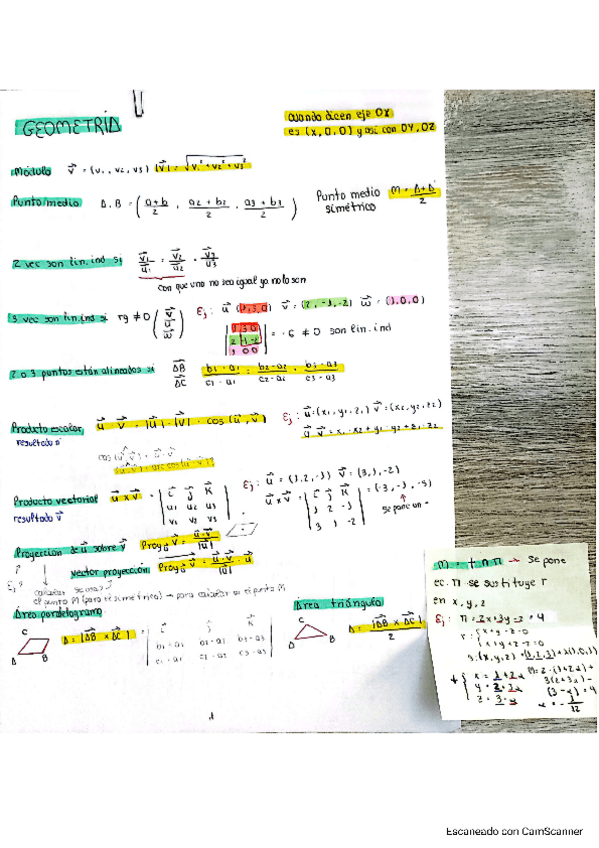 GEOMETRÍA
cuando dicen eje OX
es (x, 0, 0) y así con OY, OZ
Módulo v⃗ = (v₁, v₂, v₃) |v⃗| = √(v₁² + v₂² + v₃²)
Punto medio A, B = ( a+b/2 , a2+b2/2 , a3+b3/2 )
Punto medio simétrico M = A+A'/2
2 vec son lin.ind si v₁/u₁ = v₂/u₂ = v₃/u₃
con que uno no sea igual ya no lo son
3 vec son lin.ind si rg ≠ 0 (v⃗ u⃗ w⃗)
Ej: u⃗ (1,3,0) v⃗ = (2,-1,-2) w⃗ = (1,0,0)
|1 3 0|
|2 -1 -2| = -6 ≠ 0 son lin.ind
|1 0 0|
2 o 3 puntos están alineados si AB⃗ / AC⃗ b1-a1/c1-a1 = b2-a2/c2-a2 = b3-a3/c3-a3
Producto escalar u⃗ · v⃗ = |u⃗| · |v⃗| · cos (u⃗, v⃗)
resultado
Ej: u⃗ = (x₁, y₁, z₁) v⃗ = (x₂, y₂, z₂)
u⃗ · v⃗ = x₁·x₂ + y₁·y₂ + z₁·z₂
Producto vectorial u⃗ x v⃗ = | i⃗ j⃗ k⃗ |
resultado v⃗ | u₁ u₂ u₃ |
| v₁ v₂ v₃ |
Ej: u⃗ = (1,2,-1) v⃗ = (3,1,-2)
u⃗ x v⃗ = | i⃗ j⃗ k⃗ | = (-3, -1, -5)
| 1 2 -1 |
| 3 1 -2 |
se pone un -
Proyección de u⃗ sobre v⃗ Proy v⃗ = u⃗·v⃗/|u⃗|
vector proyección
el punto M (para el simétrico) → para calcular el punto M
Área paralelogramo
C
A B
A = |AB⃗ x AC⃗|
| i⃗ j⃗ k⃗ |
| b1-a1 b2-a2 b3-a3 |
| c1-a1 c2-a2 c3-a3 |
Área triángulo
C
A B
A = |AB⃗ x AC⃗| / 2
M = r ∩ π → se pone
ec. π se sustituye r
en x, y, z
Ej: π = 2x+3y-z = 4
1
Escaneado con CamScanner